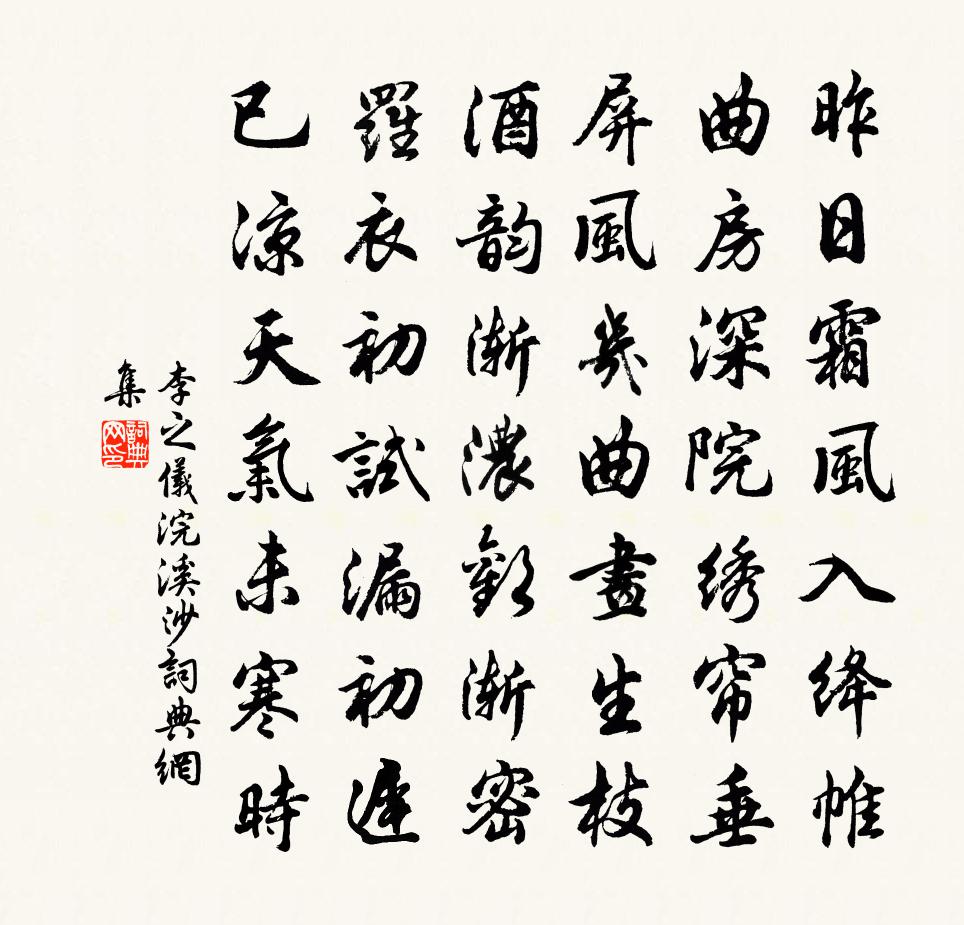 昨日霜風入絳帷
曲房深院綉帘垂
屏風幾曲畫生枝
酒韵漸濃歡漸密
羅衣初試漏初遲
已涼天氣未寒時
李之儀浣溪沙詞典網
集
詞典
网印